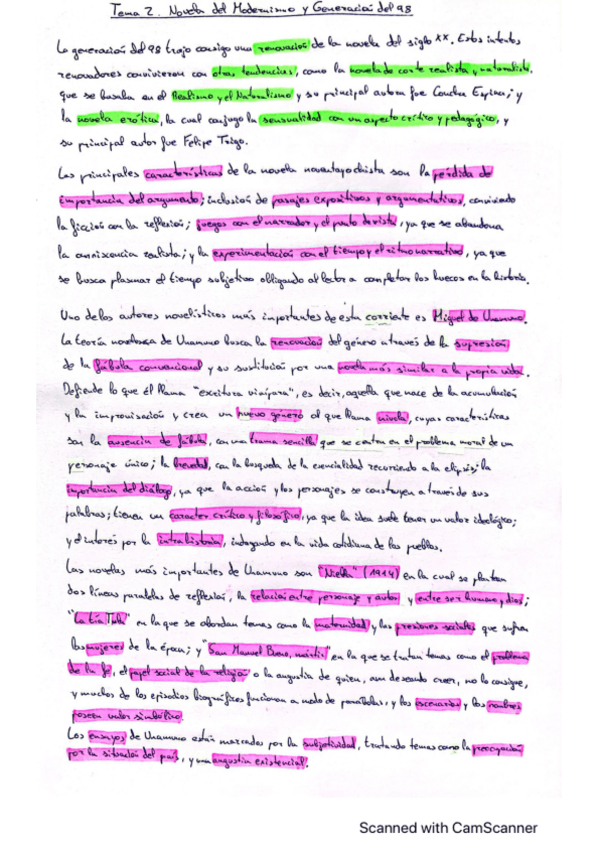 Tema 2. Novela del Modernismo y Generación del 98
La generación del 98 trajo consigo una renovación de la novela del siglo XX. Estos intentos
renovadores convivieron con otras tendencias, como la novela de corte realista y naturalista,
que se basaba en el Realismo y el Naturalismo y su principal autora fue Concha Espina; y
la novela erótica, la cual conjuga la sensualidad con un aspecto crítico y pedagógico, y
su principal autor fue Felipe Trigo.
Las principales características de la novela noventayochista son la pérdida de
importancia del argumento; inclusión de pasajes expositivos y argumentativos, conviviendo
la ficción con la reflexión; juegos con el narrador y el punto de vista, ya que se abandona
la omnisciencia realista; y la experimentación con el tiempo y el ritmo narrativo, ya que
se busca plasmar el tiempo subjetivo obligando al lector a completar los huecos en la historia.
Uno de los autores novelísticos más importantes de esta corriente es Miguel de Unamuno.
La teoría novelesca de Unamuno busca la renovación del género a través de la supresión
de la fábula convencional y su sustitución por una novela más similar a la propia vida.
Defiende lo que él llama "escritura vivípara", es decir, aquella que nace de la acumulación
y la improvisación y crea un nuevo género al que llama nivola, cuyas características
son la ausencia de fábula, con una trama sencilla que se centra en el problema moral de un
personaje único; la brevedad, con la búsqueda de la esencialidad recurriendo a la elipsis; la
importancia del diálogo, ya que la acción y los personajes se construyen a través de sus
palabras; tienen un carácter crítico y filosófico, ya que la idea suele tener un valor ideológico;
y el interés por la intrahistoria, indagando en la vida cotidiana de los pueblos.
Las novelas más importantes de Unamuno son "Niebla" (1914) en la cual se plantean
dos líneas paralelas de reflexión, la relación entre personaje y autor y entre ser humano y dios;
"La tía Tula" en la que se abordan temas como la maternidad y las presiones sociales que sufren
las mujeres de la época; y "San Manuel Bueno, mártir" en la que se tratan temas como el problema
de la fe, el papel social de la religión o la angustia de quien, aun deseando creer, no lo consigue,
y muchos de los episodios biográficos funcionan a modo de parábolas, y los escenarios y los nombres
poseen valor simbólico.
Los ensayos de Unamuno están marcados por la subjetividad, tratando temas como la preocupación
por la situación del país, y una angustia existencial.
Scanned with CamScanner